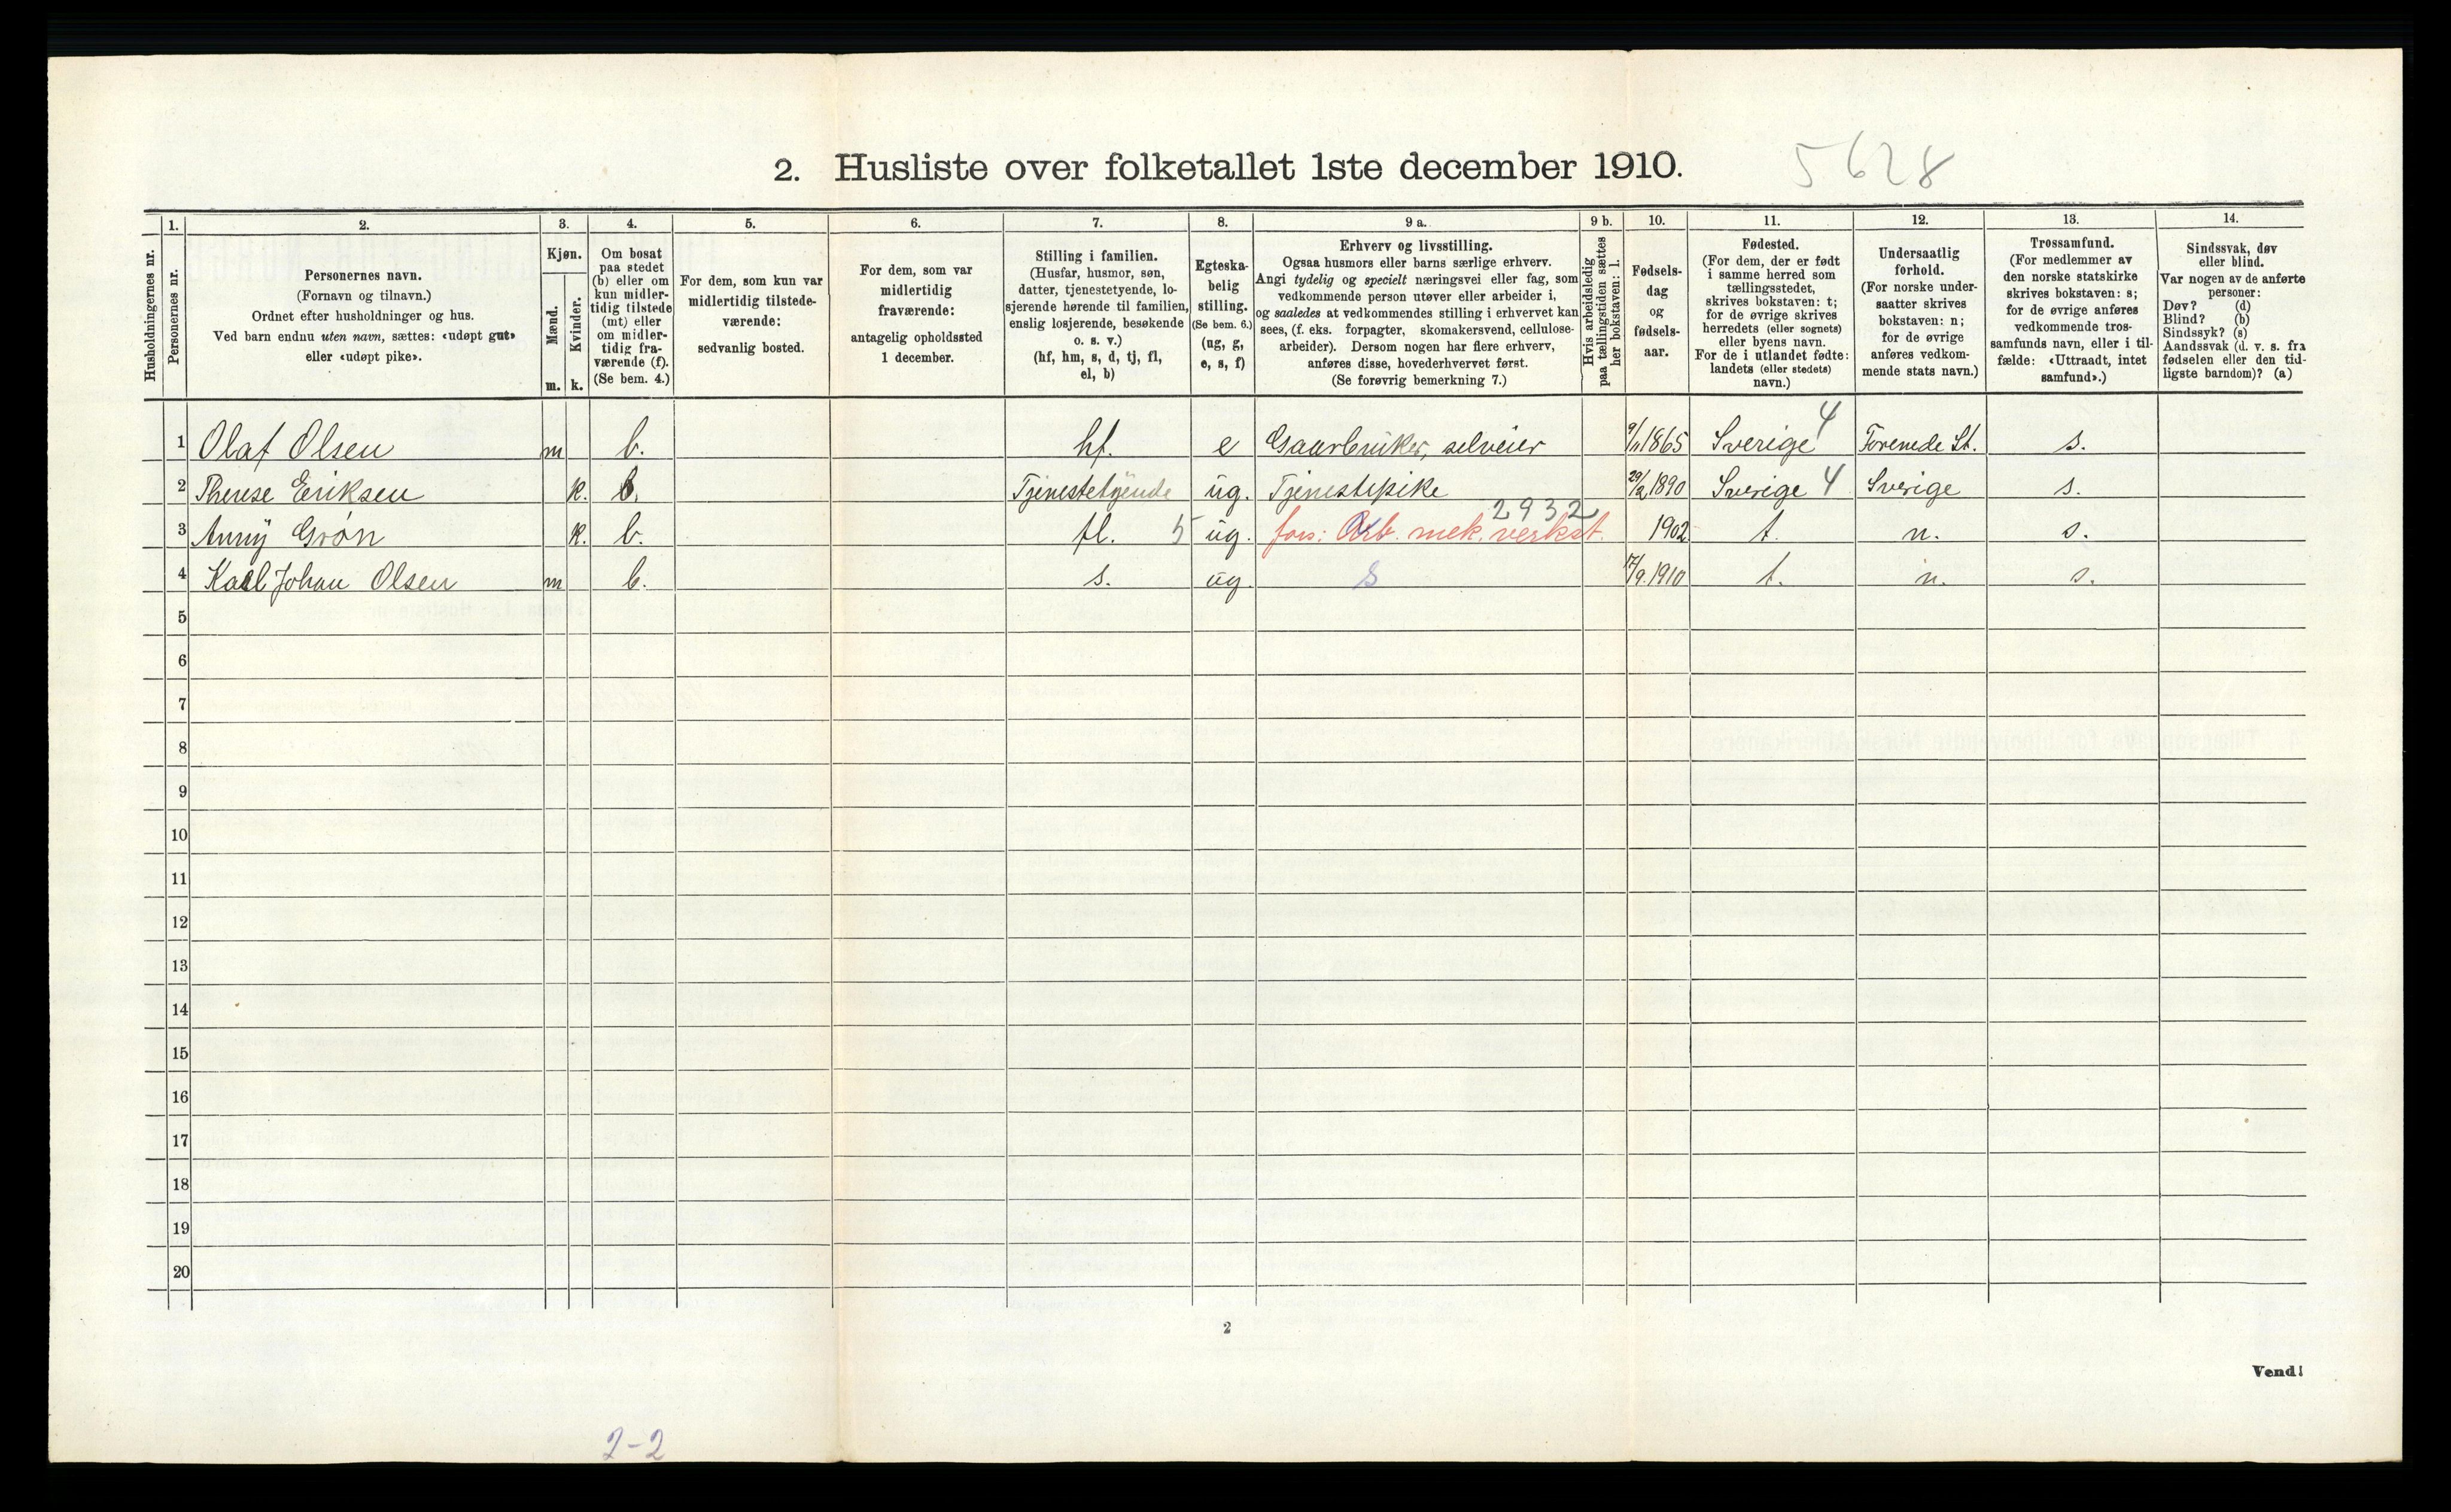 2. Husliste over folketallet 1ste december 1910.
5628
1. 2. 3. 4. 5. 6. 7. 8. 9 a. 9 b. 10. 11. 12. 13. 14.
Husholdningernes nr.
Personernes nr.
Personernes navn.
(Fornavn og tilnavn.)
Ordnet efter husholdninger og hus.
Ved barn endnu uten navn, sættes: «udøpt gut»
eller «udøpt pike».
Kjøn.
Mænd.
Kvinder.
m. k.
Om bosat
paa stedet
(b) eller om
kun midler-
tidig tilstede
(mt) eller
om midler-
tidig fra-
værende (f).
(Se bem. 4.)
For dem, som kun var
midlertidig tilstede-
værende:
sedvanlig bosted.
For dem, som var
midlertidig
fraværende:
antagelig opholdssted
1 december.
Stilling i familien.
(Husfar, husmor, søn,
datter, tjenestetyende, lo-
sjerende hørende til familien,
enslig losjerende, besøkende
o. s. v.)
(hf, hm, s, d, tj, fl,
el, b)
Egteska-
belig
stilling.
(Se bem. 6.)
(ug, g,
e, s, f)
Erhverv og livsstilling.
Ogsaa husmors eller barns særlige erhverv.
Angi tydelig og specielt næringsvei eller fag, som
vedkommende person utøver eller arbeider i,
og saaledes at vedkommendes stilling i erhvervet kan
sees, (f. eks. forpagter, skomakersvend, cellulose-
arbeider). Dersom nogen har flere erhverv,
anføres disse, hovederhvervet først.
(Se forøvrig bemerkning 7.)
Hvis arbeidsledig
paa tællingstiden sættes
her bokstaven: l.
Fødsels-
dag
og
fødsels-
aar.
Fødested.
(For dem, der er født
i samme herred som
tællingsstedet,
skrives bokstaven: t;
for de øvrige skrives
herredets (eller sognets)
eller byens navn.
For de i utlandet fødte:
landets (eller stedets)
navn.)
Undersaatlig
forhold.
(For norske under-
saatter skrives
bokstaven: n;
for de øvrige
anføres vedkom-
mende stats navn.)
Trossamfund.
(For medlemmer av
den norske statskirke
skrives bokstaven: s;
for de øvrige anføres
vedkommende tros-
samfunds navn, eller i til-
fælde: «Uttraadt, intet
samfund».)
Sindssvak, døv
eller blind.
Var nogen av de anførte
personer:
Døv? (d)
Blind? (b)
Sindssyk? (s)
Aandssvak (d. v. s. fra
fødselen eller den tid-
ligste barndom)? (a)
1 Olaf Olsen m b. hf. e Gaarbruker, selveier 9/11 1865 Sverige 4 Forenede St. s.
2 Therese Eriksen k. b. Tjenestetyende ug. Tjenestepike 29/2 1890 Sverige 4 Sverige s.
2932
3 Anny Grøn k. b. fl. 5 ug. fors: Arb. mek. verkst. 1902 t. n. s.
4 Karl Johan Olsen m b. s. ug. S 17/9 1910 t. n. s.
5
6
7
8
9
10
11
12
13
14
15
16
17
18
19
20
2
Vend!
2-2